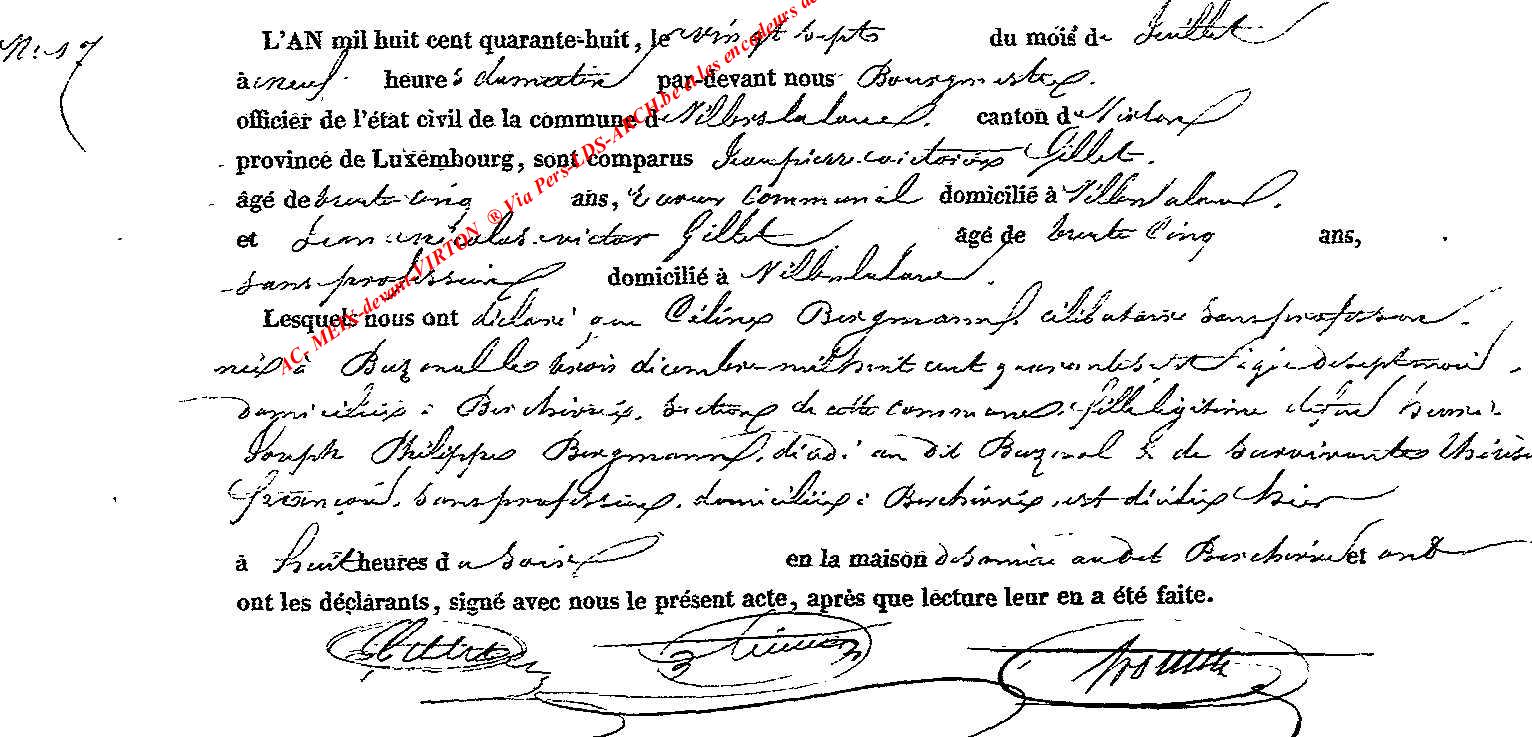 N.° 17
L'AN mil huit cent quarante-huit, le vingt septs du mois de Juillet
à neuf heures du matin par-devant nous Bourgmestre
officier de l'état civil de la commune de Villers la loue. canton de Virton
province de Luxembourg, sont comparus Jean pierre victorin Gillet.
âgé de trente-cinq ans, receveur communal domicilié à Villers la loue.
et Jean nicolas victor Gillet âgé de trente cinq ans,
sans profession domicilié à Villers la loue.
Lesquels nous ont déclaré que Céline Bergmann, célibataire sans profession.
née à Buzenol le trois décembre mil huit cent quarante sept âgée de sept mois
domiciliée à Berchivée, section de cette commune, fille légitime de feu
Joseph Philippe Bergmann, décédé au dit Buzenol & de survivante Thérèse
François, sans profession, domiciliée à Berchivée, est décédée hier
à huit heures du soir en la maison de sa mère au dit Berchivée et ont
ont les déclarants, signé avec nous le présent acte, après que lecture leur en a été faite.
AC, MEIX-devant-VIRTON ® Via Pers-LDS-ARCH.be et les encodeurs